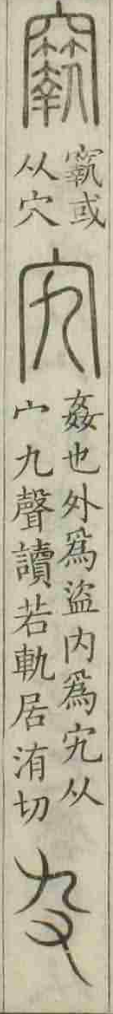 或
从穴
宄
姦也外爲盜内爲宄从
宀九聲讀若軌居洧切